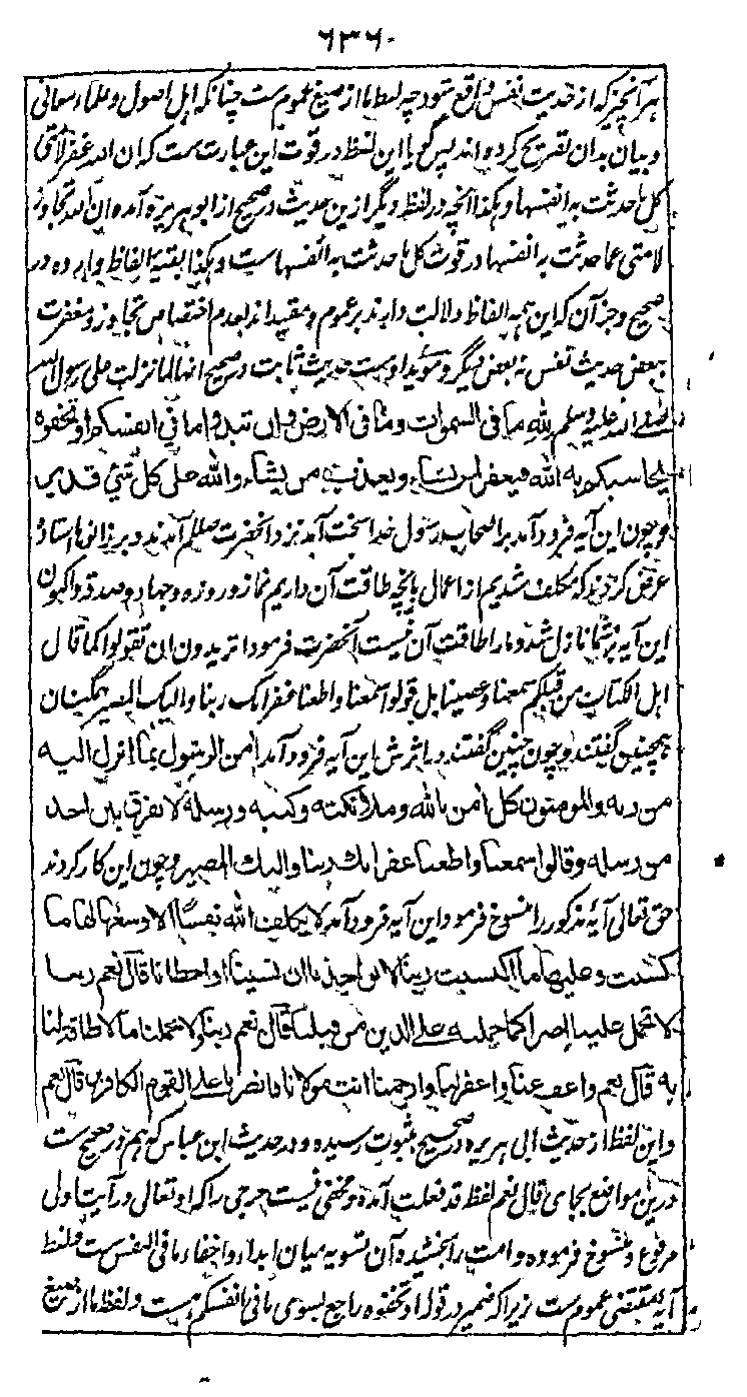 ۶۳۶
هر آنچیز که از حدیث نفس واقع شود چه لفظ ما از صیغ عموم ست چنانکه اهل اصول و علماء معانی
و بیان بدان تصریح کرده اند پس گویا این لفظ در قوت این عبارت ست که ان الله غفر لامتی
کل ما حدثت به انفسها و هکذا آنچه در لفظ دیگر ازین حدیث در صحیح از ابو هریره آمده ان الله تجاوز
لامتی عما حدثت به انفسها در قوت کل ما حدثت به انفسها است و هکذا بقیة الفاظ وارده در
صحیح و جز آن که این همه الفاظ دلالت دارند بر عموم و مقید اند بعدم اختصاص تجاوز و مغفرت
ببعض حدیث نفس نه بعض دیگر و مؤید اوست حدیث ثابت در صحیح انها لما نزلت علی رسول الله
صلی الله علیه وسلم لله ما فی السموات وما فی الارض وان تبدوا ما فی انفسکم او تخفوه
یحاسبکم به الله فیغفر لمن یشاء ویعذب من یشاء والله علی کل شئ قدیر
و چون این آیه فرود آمد بر اصحاب رسول خدا سخت آمد نزد آنحضرت صللم آمدند و بر زانو استاده
عرض کردند که مکلف شدیم از اعمال بآنچه طاقت آن داریم نماز و روزه و جهاد و صدقه و اکنون
این آیه بر شما نازل شده و ما را طاقت آن نیست آنحضرت فرمود اتریدون ان تقولوا کما قال
اهل الکتاب من قبلکم سمعنا وعصینا بل قولوا سمعنا واطعنا غفرانک ربنا والیک المصیر همگینان
همچنین گفتند و چون چنین گفتند در اثرش این آیه فرود آمد آمن الرسول بما انزل الیه
من ربه والمومنون کل آمن بالله وملائکته وکتبه ورسله لا نفرق بین احد
من رسله وقالوا سمعنا واطعنا غفرانک ربنا والیک المصیر و چون این کار کردند
حق تعالی آیهٔ مذکور را منسوخ فرمود و این آیه فرود آمد لا یکلف الله نفسا الا وسعها لها ما
کسبت وعلیها ما اکتسبت ربنا لا تواخذنا ان نسینا او اخطانا قال نعم ربنا
لا تحمل علینا اصرا کما حملته علی الذین من قبلنا قال نعم ربنا ولا تحملنا ما لا طاقة لنا
به قال نعم واعف عنا واغفر لنا وارحمنا انت مولانا فانصرنا علی القوم الکافرین قال نعم
و این لفظ از حدیث ابی هریره در صحیح بثبوت رسیده و در حدیث ابن عباس که هم در صحیح ست
درین مواضع بجای قال نعم لفظ قد فعلت آمده و مخفی نیست حرجی را که او تعالی در آیت اولی
مرفوع و منسوخ فرموده و امت را بخشیده آن تسویه میان ابداء و اخفاء ما فی النفس ست و لفظ
آیه مقتضی عموم ست زیرا که ضمیر در قوله او تخفوه راجع بسوی ما فی انفسکم ست و لفظ ما از صیغ